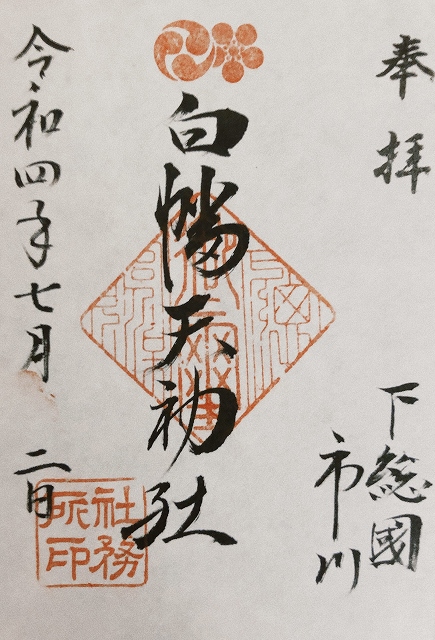 奉拝
下総國
市川
白幡天神社
令和四年七月二日
社務
所印